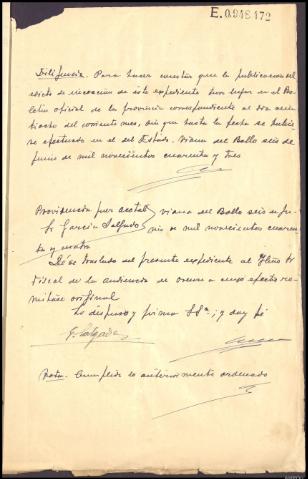 E.0948472
Diligencia. Para hacer constar que la publicacion del
edicto de incoacion de este expediente tuvo lugar en el Bo
letin oficial de la provincia correspondiente al dia
del corriente mes, sin que hasta la fecha se hubie
se efectuado en el del Estado. Viana del Bollo seis de
junio de mil novecientos cuarenta y tres
Providencia juez acctal Viana del Bollo seis
Sr Garcia Salgado de mil novecientos cuaren
ta y
Dése traslado del presente expediente al Iltmo Sr
Fiscal de la audiencia de Orense a cuyo efecto re
mitase original
Lo dispuso y firma SSª; y doy fé
G. Salgado
Nota. Cumplido lo anteriormente ordenado